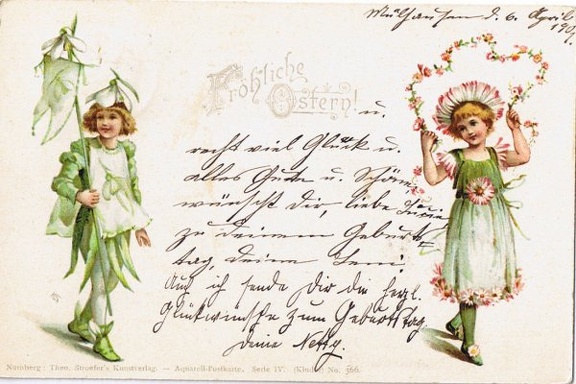 Mülhausen d. 6. April
190
Fröhliche
Ostern! u.
recht viel Glück u.
alles Gute u. Schöne
wünscht Dir, liebe
zu deinem Geburts
tag, deine
Auch ich sende Dir die herzl.
Glückwünsche zum Geburtstag.
Deine Netty.
Nürnberg: Theo. Stroefer's Kunstverlag. — Aquarell-Postkarte. Serie IV. (Kinder) No. 566.